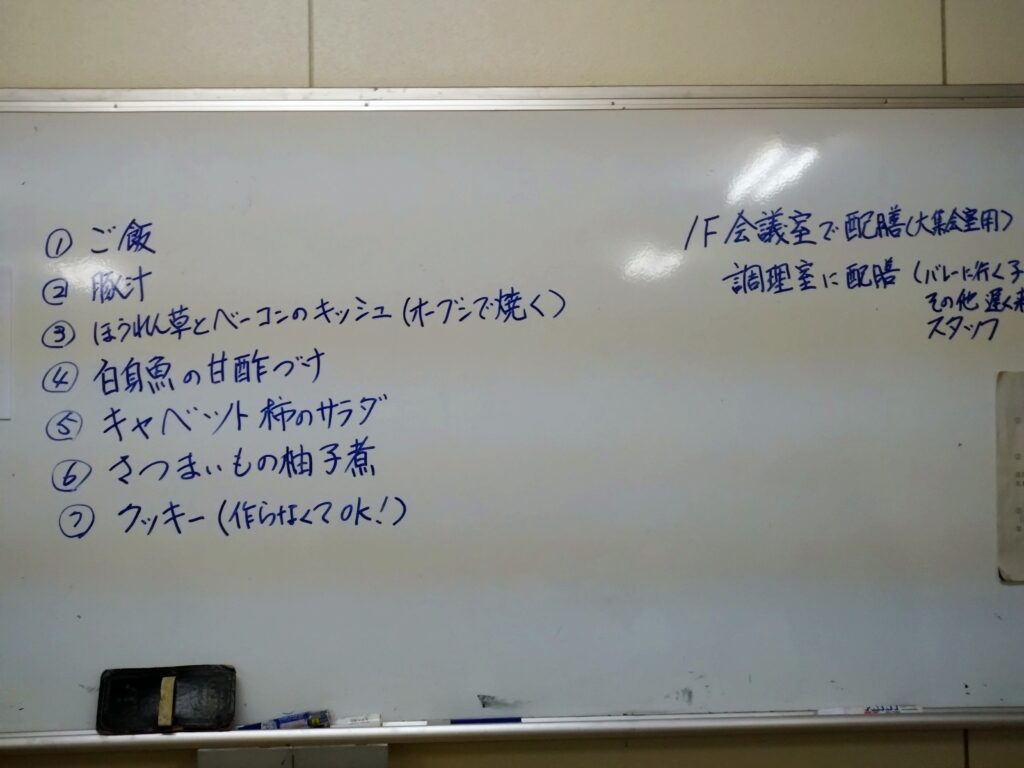 ① ご飯
② 豚汁
③ ほうれん草とベーコンのキッシュ(オーブンで焼く)
④ 白身魚の甘酢づけ
⑤ キャベツト柿のサラダ
⑥ さつまいもの柚子煮
⑦ クッキー(作らなくてOK!)
1F会議室で配膳(大集会室用)
調理室に配膳(バレーに行く子
その他 遅く来
スタッフ